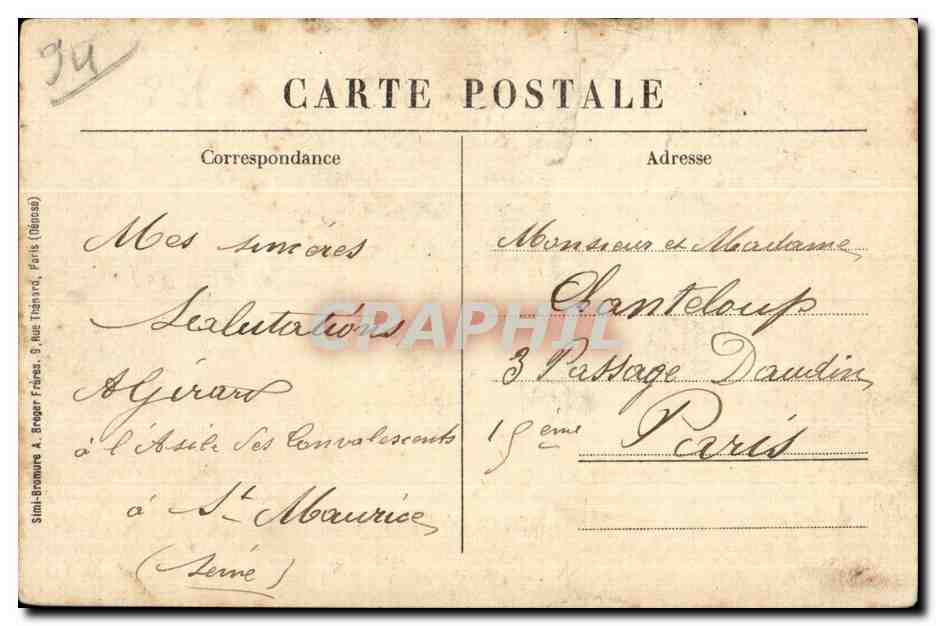 94
CARTE POSTALE
Correspondance
Mes sincères
Salutations
A Girard
à l'Asile des Convalescents
à St Maurice
(Seine)
Adresse
Monsieur et Madame
Chanteloup
3 Passage Daudin
15ème Paris
Simi-Bromure A. Breger Frères. 9, Rue Thénard, Paris (Déposé)
CPAPHIL